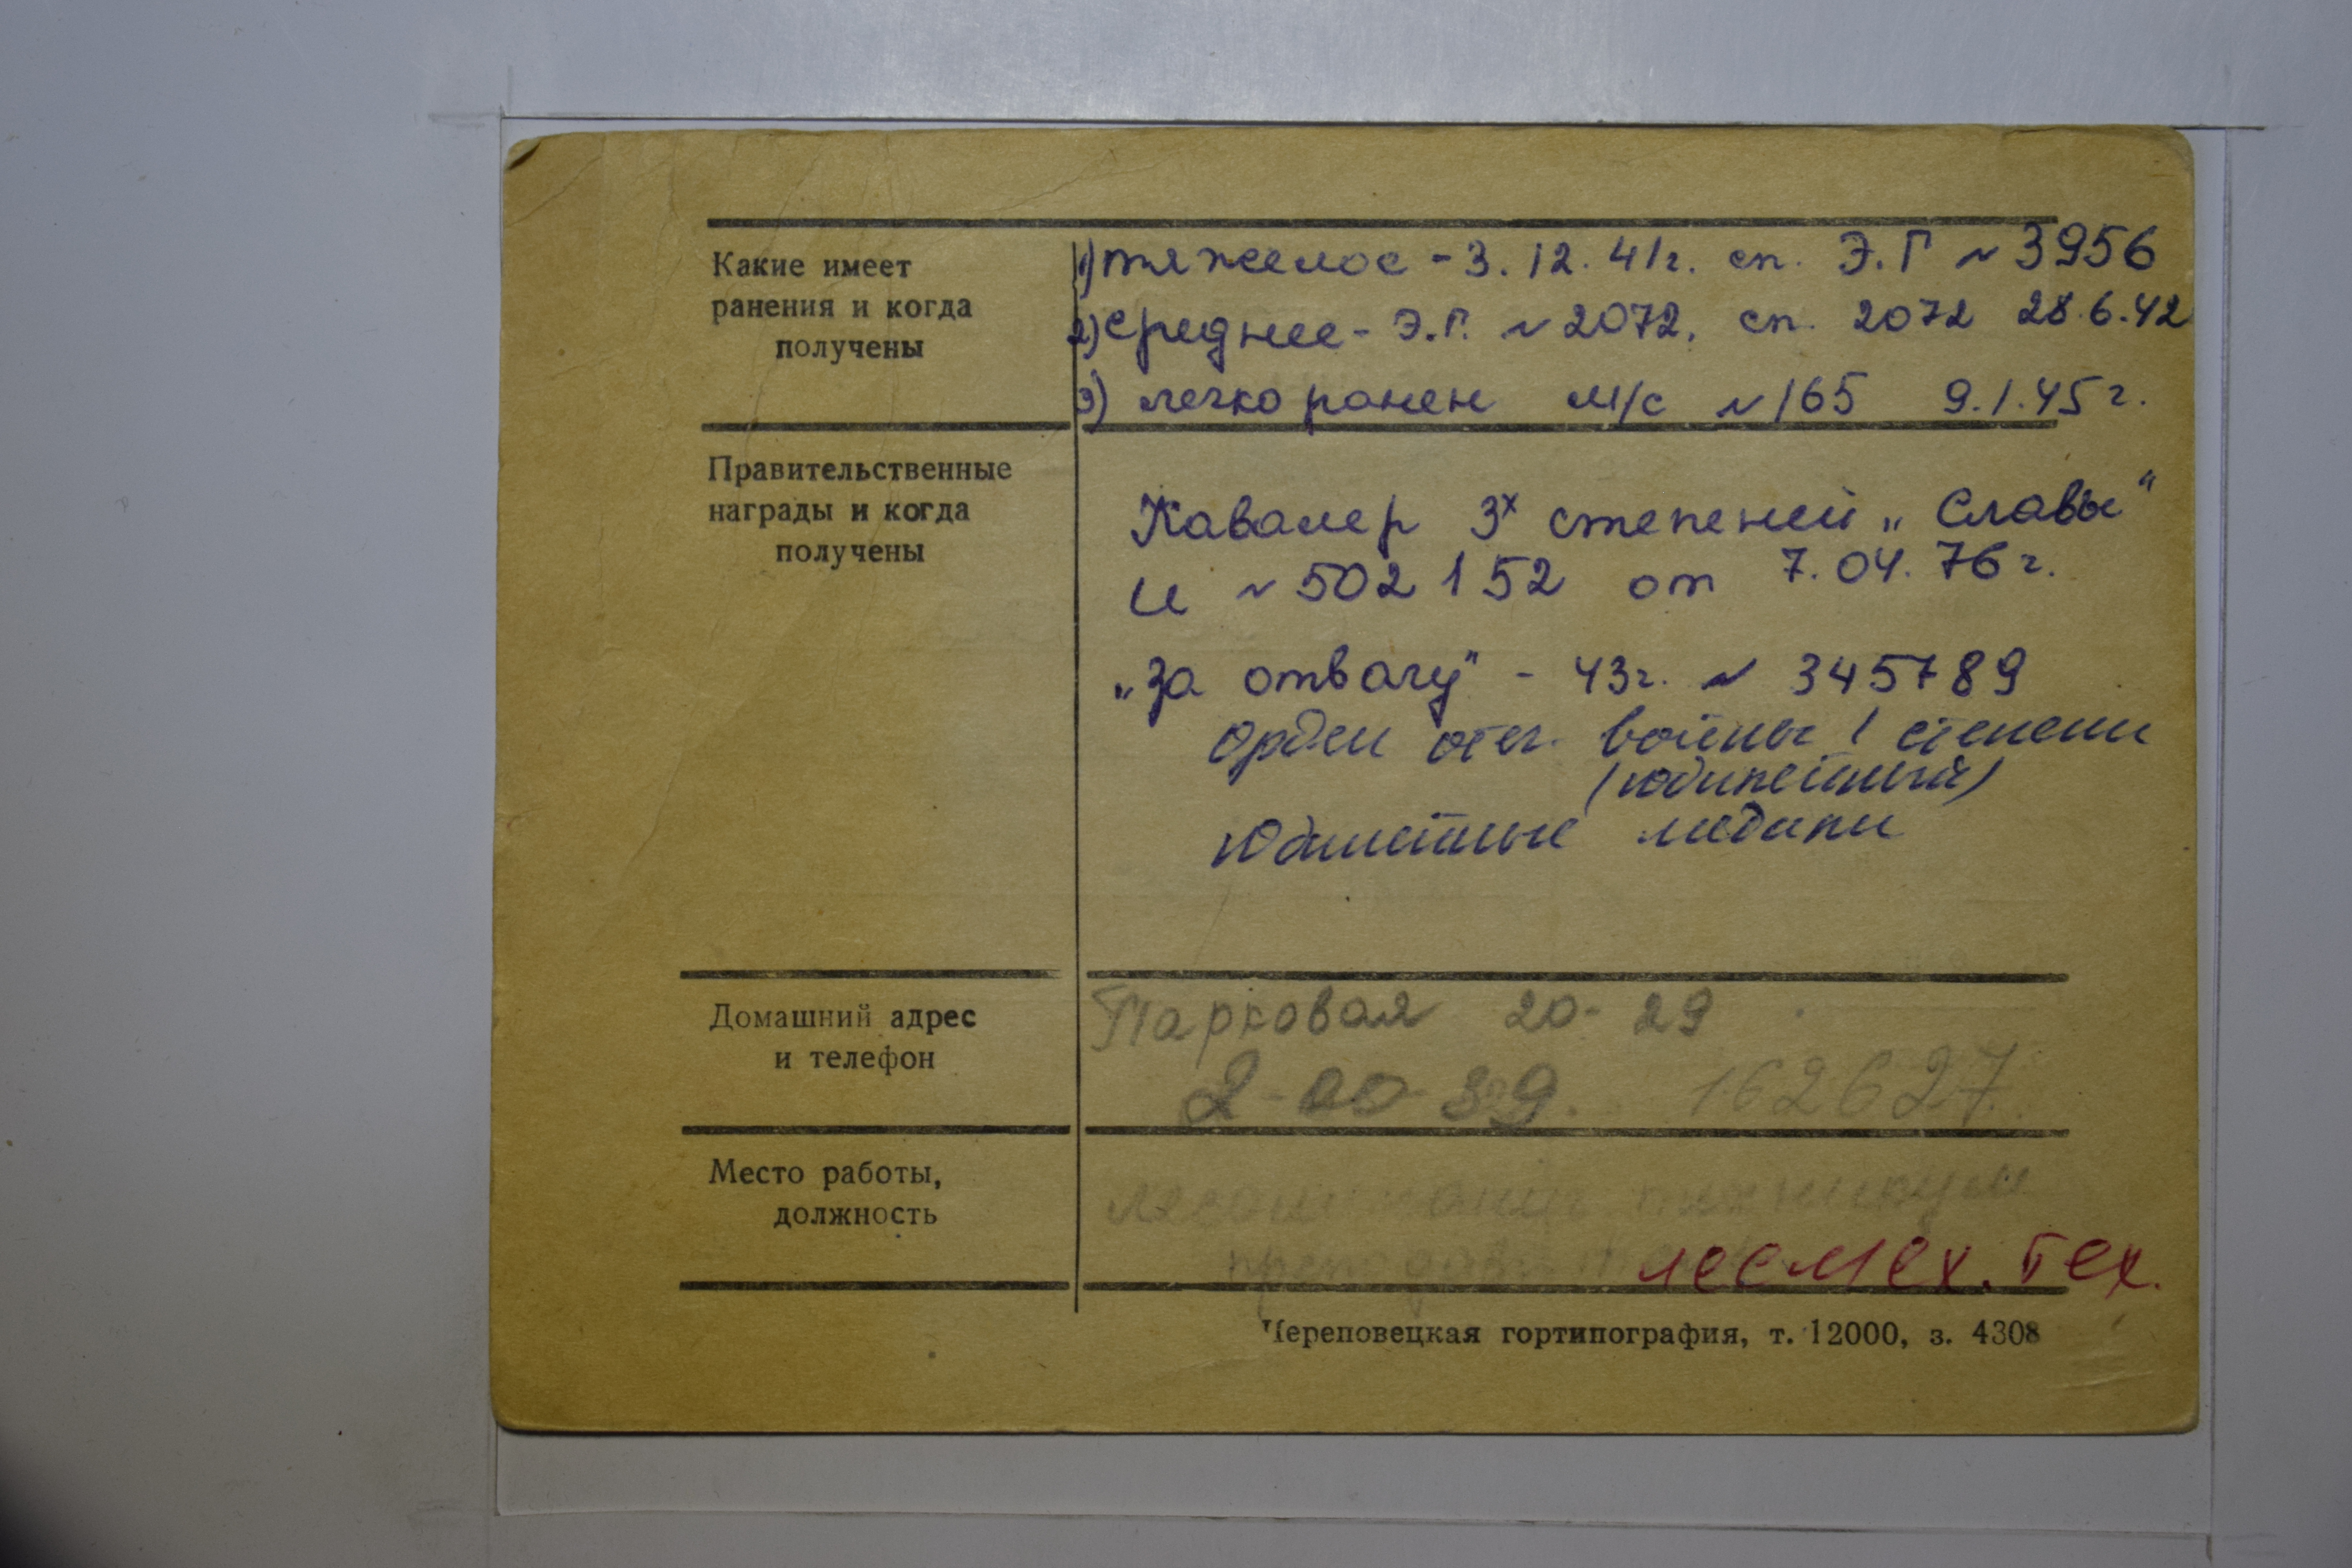 Какие имеет
ранения и когда
получены
1) тяжелое - 3.12.41г. сп. Э.Г № 3956
2) среднее - Э.Г. № 2072, сп. 2072 28.6.42
3) легко ранен м/с № 165 9.1.45г.
Правительственные
награды и когда
получены
Кавалер 3х степеней „Славы"
и № 502152 от 7.04.76г.
„За отвагу" - 43г. № 345789
Орден отеч. войны I степени
(юбилейный)
Юбилейные медали
Домашний адрес
и телефон
Парковая 20-29
2-00-89. 162627
Место работы,
должность
лесомеханич техникум
лесмех. тех.
Череповецкая гортипография, т. 12000, з. 4308